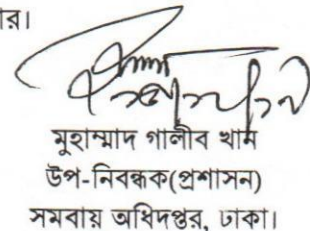 র।
মুহাম্মাদ গালীব খান
উপ-নিবন্ধক(প্রশাসন)
সমবায় অধিদপ্তর, ঢাকা।